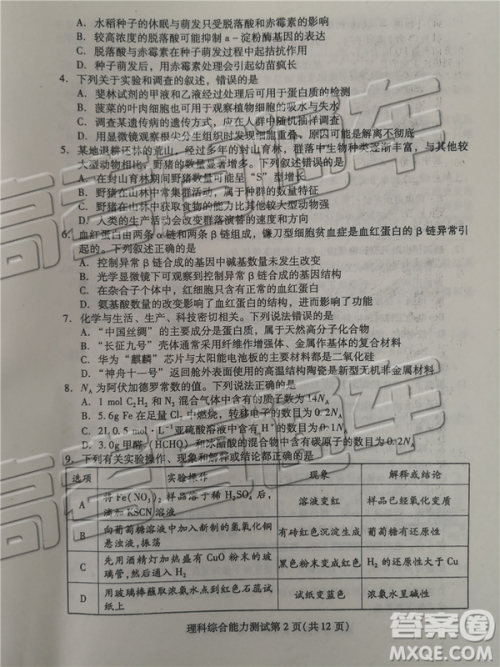 A. 水稻种子的休眠与萌发只受脱落酸和赤霉素的影响
B. 较高浓度的脱落酸可能抑制α-淀粉酶基因的转录
C. 脱落酸与赤霉素在种子萌发过程中起拮抗作用
D. 种子萌发后,用赤霉素处理会引起幼苗疯长
4. 下列关于实验和调查的叙述,错误的是
A. 斐林试剂的甲液和乙液经过处理后可用于蛋白质的检测
B. 菠菜的叶肉细胞也可用于观察植物细胞的吸水与失水
C. 调查某遗传病的发病率,应在人群中随机抽样调查
D. 用显微镜观察根尖分生组织细胞重叠,可能的原因是解离不彻底
5. 某地退耕还林的荒山,经过多年的封山育林,群落中生物种类逐渐丰富,与其他较
大型动物一样,野猪的数量显著增多。下列叙述错误的是
A. 在封山育林期间,野猪的数量可能呈“S”型增长
B. 野猪在山林中常集群活动,属于种群的数量特征
C. 野猪在山林中获取食物的能力可能优于其他较大型动物
D. 人类的生产活动会改变该地群落演替的速度和方向
6. 血红蛋白由两条α链和两条β链组成,镰刀型细胞贫血症是血红蛋白的β链异常引
起的。下列叙述正确的是
A. 控制异常β链合成的基因中碱基数量未发生改变
B. 光学显微镜下可观察到异常β链合成的基因结构
C. 在杂合子个体中,只存在含有正常的血红蛋白
D. 氨基酸数量的改变影响了异常β链的血红蛋白结构
7. 化学与生活、生产、科技密切相关。下列说法错误的是
A. “中国丝绸”的主要成分是蛋白质,属于天然高分子化合物
B. “长征九号”壳体通常采用纤维作增强体、金属作基体的复合材料
C. 华为“麒麟”芯片与太阳能电池板的主要材料都是二氧化硅
D. “神舟十一号”返回舱外表面使用的高温结构陶瓷是新型无机非金属材料
8. NA为阿伏加德罗常数的值。下列说法正确的是
A. 1 mol C₂H₂和N₂混合气体中含有的质子数为14NA
B. 5.6g Fe在足量Cl₂中燃烧,转移电子的数目为0.2NA
C. 2L 0.5 mol·L⁻¹亚硫酸溶液中含有H⁺的数目为2NA
D. 3.0g甲醛(HCHO)和冰醋酸的混合物中含有碳原子的数目为0.1NA
9. 下列有关实验操作、现象和解释或结论都正确的是
选项 实验操作 现象 解释或结论
A 将Fe(NO₃)₂样品溶于稀H₂SO₄后,滴加KSCN溶液 溶液变红 样品已经氧化变质
B 向葡萄糖溶液中加入新制的氢氧化铜悬浊液,振荡 有砖红色沉淀生成 葡萄糖有还原性
C 先用酒精灯加热盛有CuO粉末的玻璃管,然后通入H₂ 黑色粉末变成红色 H₂的还原性大于Cu
D 用玻璃棒蘸取浓氨水点到红色石蕊试纸上 试纸变蓝色 浓氨水呈碱性
理科综合能力测试第2页(共12页)
高考直通车
答案圈